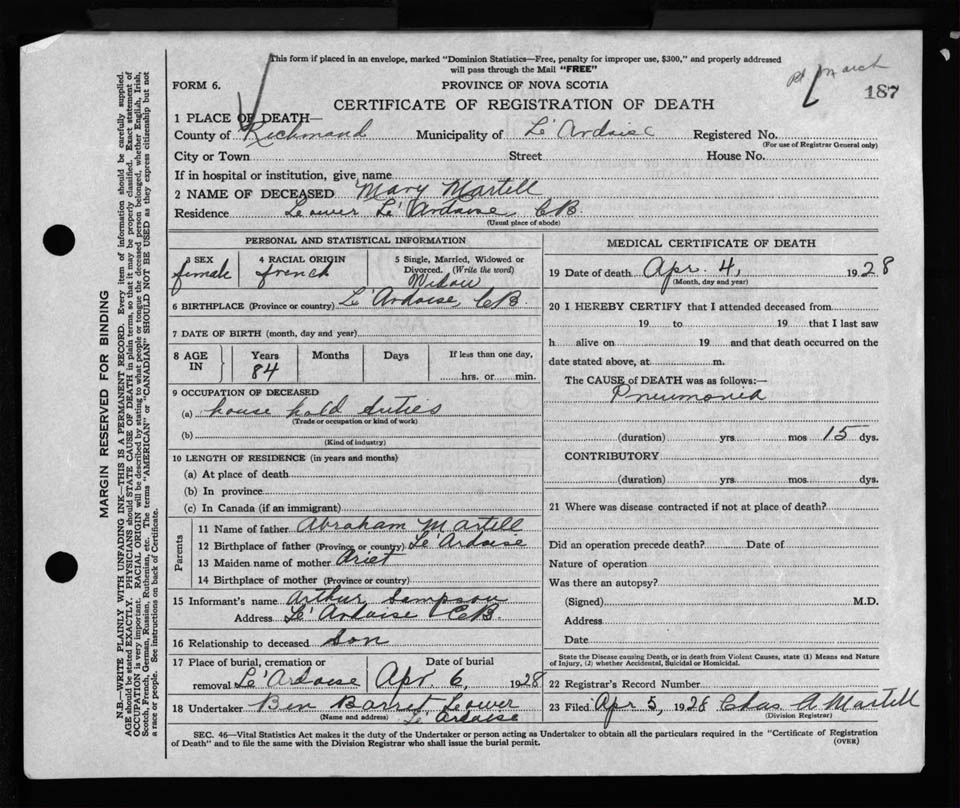 This form if placed in an envelope, marked "Dominion Statistics—Free, penalty for improper use, $300," and properly addressed
will pass through the Mail "FREE"
March
187
FORM 6.
PROVINCE OF NOVA SCOTIA
CERTIFICATE OF REGISTRATION OF DEATH
1 PLACE OF DEATH—
County of Richmond Municipality of L'Ardoise Registered No.
(For use of Registrar General only)
City or Town Street House No.
If in hospital or institution, give name
2 NAME OF DECEASED Mary Martell
Residence Leower Le'Ardoise, CB.
(Usual place of abode)
PERSONAL AND STATISTICAL INFORMATION
3 SEX
female
4 RACIAL ORIGIN
french
5 Single, Married, Widowed or
Divorced. (Write the word)
Widow
6 BIRTHPLACE (Province or country) Le'Ardoise, CB.
7 DATE OF BIRTH (month, day and year)
8 AGE
IN
Years
84
Months
Days
If less than one day,
hrs. or min.
9 OCCUPATION OF DECEASED
(a) house hold duties
(Trade or occupation or kind of work)
(b)
(Kind of industry)
10 LENGTH OF RESIDENCE (in years and months)
(a) At place of death
(b) In province
(c) In Canada (if an immigrant)
Parents
11 Name of father Abraham Martell
12 Birthplace of father (Province or country) Le'Ardoise
13 Maiden name of mother
14 Birthplace of mother (Province or country)
15 Informant's name Arthur Sampson
Address Le'Ardoise CB.
16 Relationship to deceased Son
17 Place of burial, cremation or
removal Le'Ardoise
Date of burial
Apr 6, 1928
18 Undertaker Ben Leower
(Name and address) Le'ardoise
MEDICAL CERTIFICATE OF DEATH
19 Date of death Apr. 4, 1928
(Month, day and year)
20 I HEREBY CERTIFY that I attended deceased from
19 to 19 that I last saw
h alive on 19 and that death occurred on the
date stated above, at m.
The CAUSE of DEATH was as follows:—
Pneumonia
(duration) yrs. mos 15 dys.
CONTRIBUTORY
(duration) yrs. mos. dys.
21 Where was disease contracted if not at place of death?
Did an operation precede death? Date of
Nature of operation
Was there an autopsy?
(Signed) M.D.
Address
Date
State the Disease causing Death, or in death from Violent Causes, state (1) Means and Nature
of Injury, (2) whether Accidental, Suicidal or Homicidal.
22 Registrar's Record Number
23 Filed Apr 5, 1928 Chas A Martell
(Division Registrar)
SEC. 46—Vital Statistics Act makes it the duty of the Undertaker or person acting as Undertaker to obtain all the particulars required in the "Certificate of Registration
of Death" and to file the same with the Division Registrar who shall issue the burial permit.
(OVER)
MARGIN RESERVED FOR BINDING
N.B.—WRITE PLAINLY WITH UNFADING INK—THIS IS A PERMANENT RECORD. Every item of information should be carefully supplied.
AGE should be stated EXACTLY. PHYSICIANS should STATE CAUSE OF DEATH in plain terms, so that it may be properly classified. Exact statement of
OCCUPATION is very important. RACIAL ORIGIN will be described by stating to what people or tongue the deceased person belonged, whether English, Irish,
Scotch, French, German, Russian, Ruthenian, etc. The terms "AMERICAN" or "CANADIAN" SHOULD NOT BE USED as they express citizenship but not
a race or people. See instructions on back of Certificate.